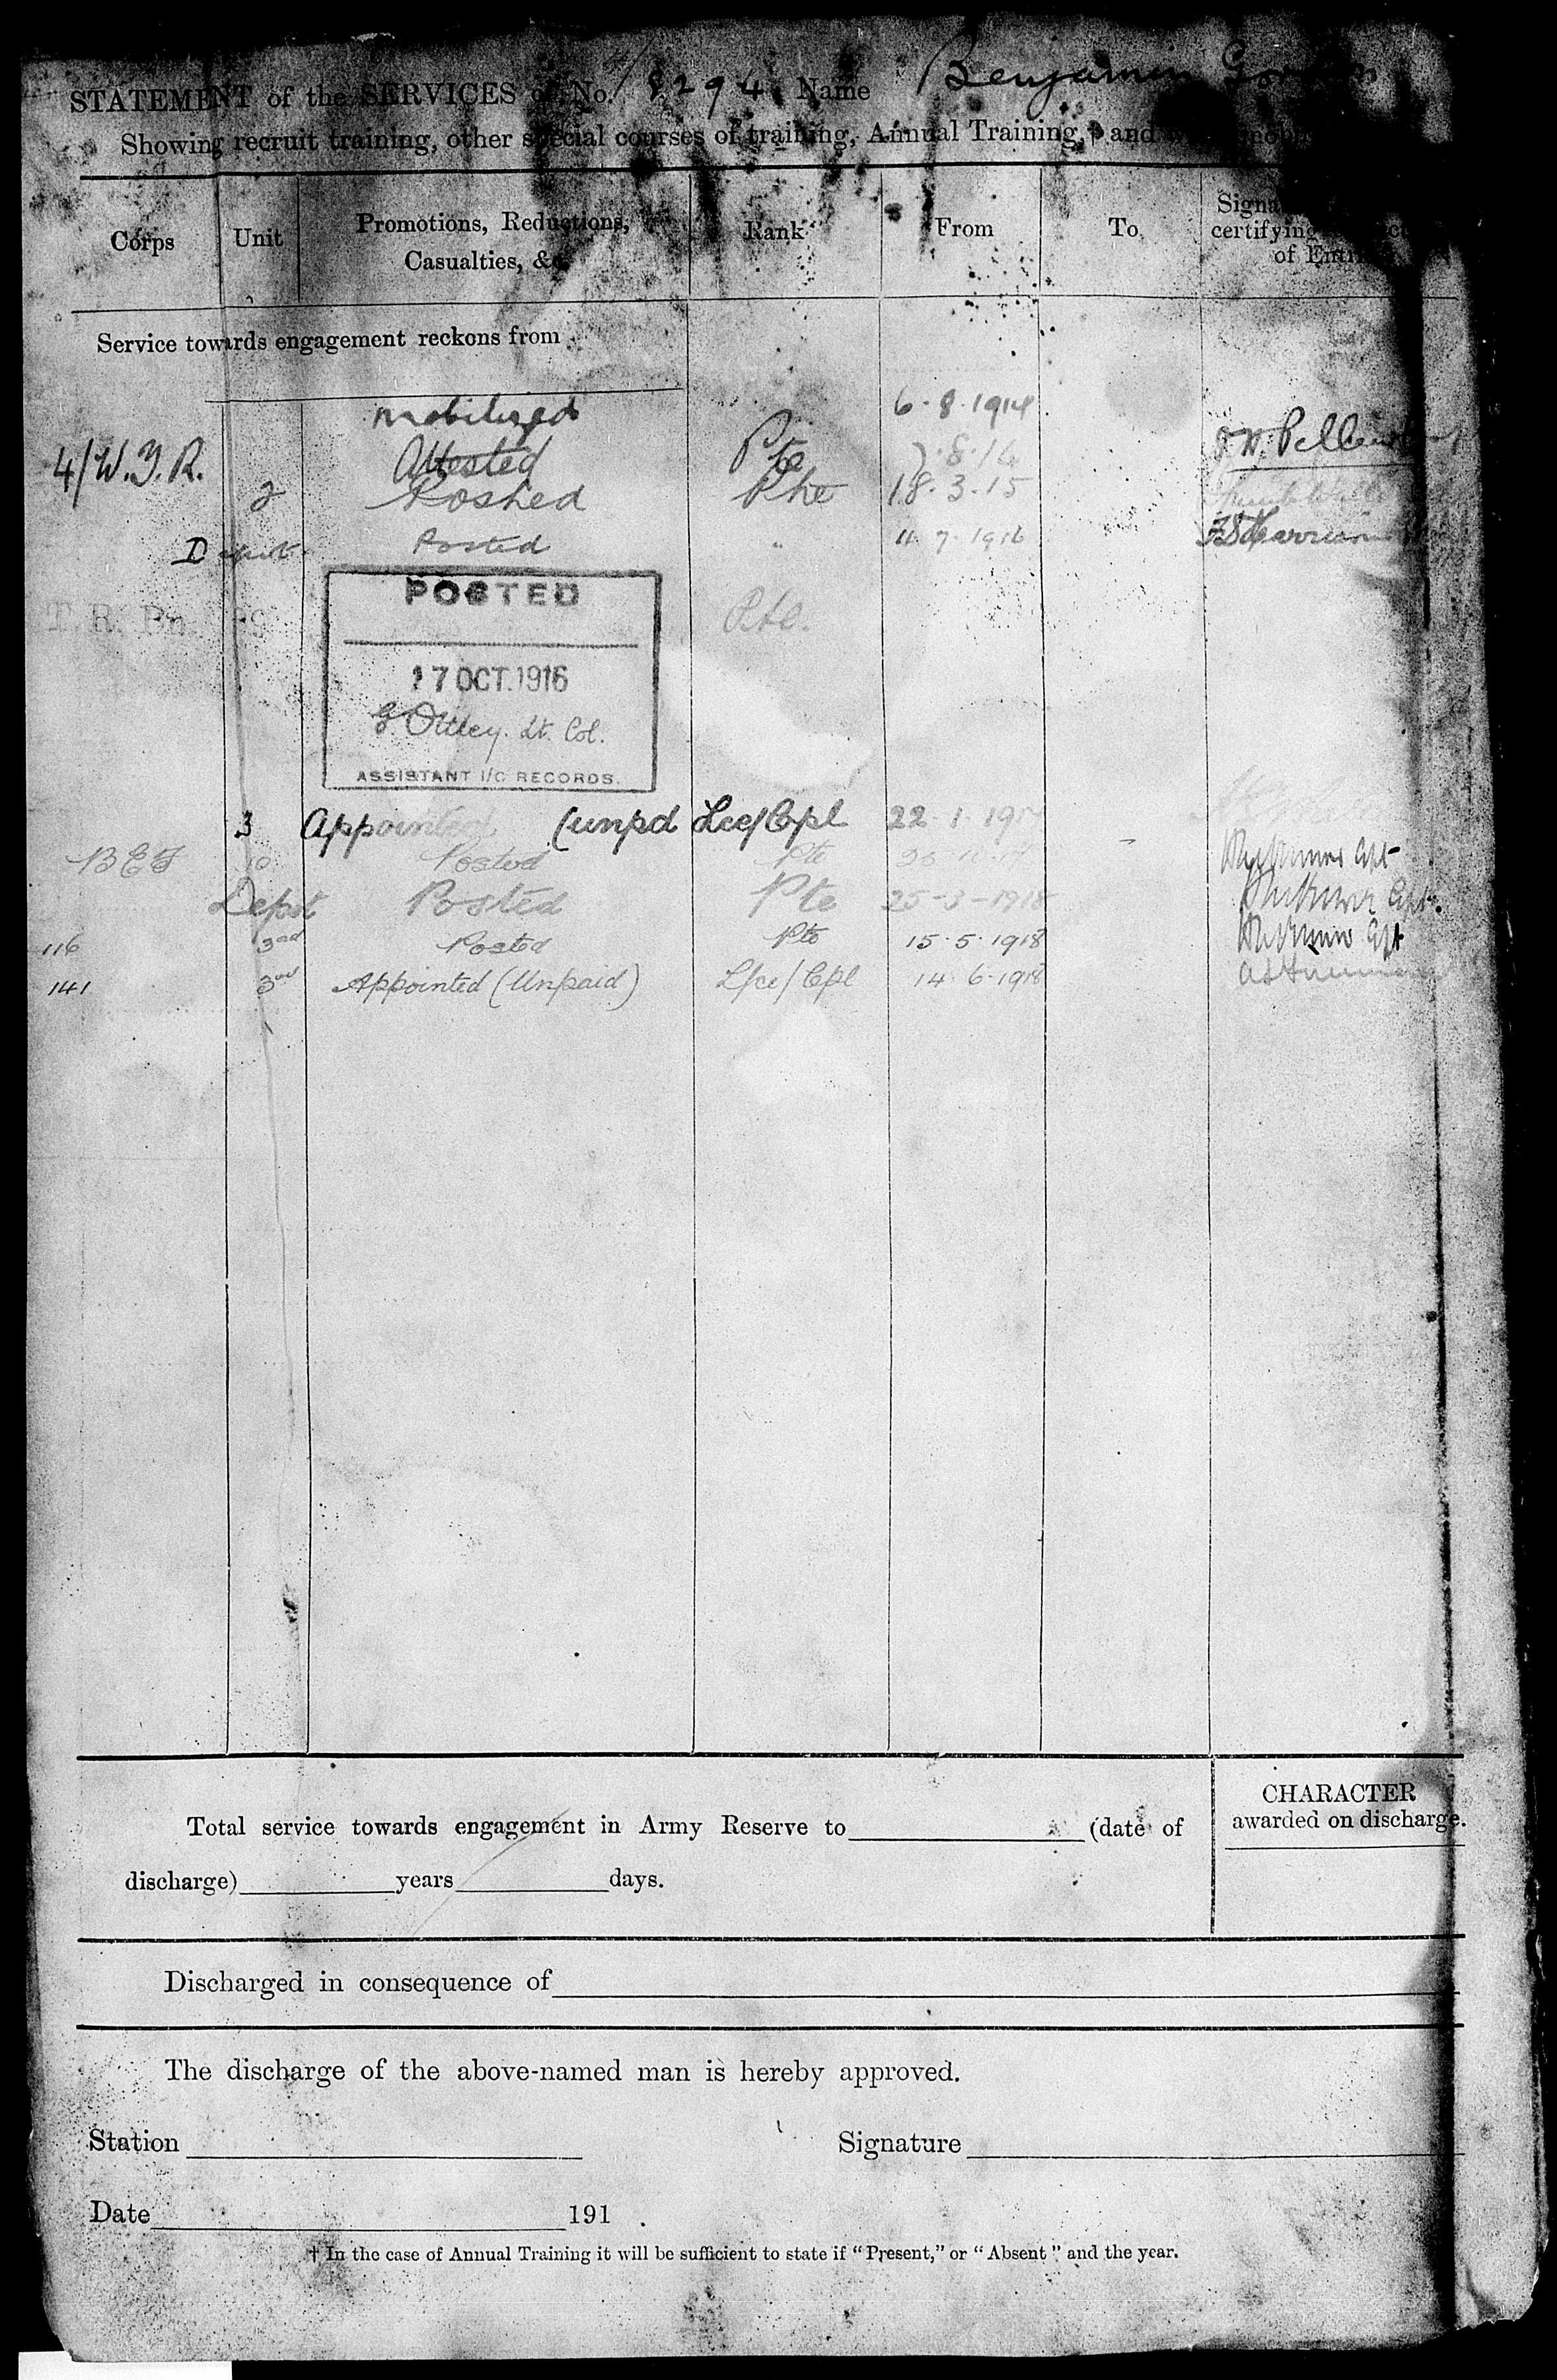 STATEMENT of the SERVICES of No. 8294 Name Benjamin
Showing recruit training, other special courses of training, Annual Training,† and
Corps Unit Promotions, Reductions, Casualties, &c. Rank From To Signa certifying of Entri
Service towards engagement reckons from
Mobilized 6-8-1914
4/W.Y.R. Attested Pte 7.8.14
2 Posted Pte 18.3.15
Depot Posted " 11.7.1916
T. R. Bn Pte.
POSTED
17 OCT. 1916
Ottley. Lt. Col.
ASSISTANT I/C RECORDS.
3 Appointed (unpd Lce/Cpl 22.1.191
BEF 10 Posted Pte
Depot Posted Pte 25-3-1918
116 3rd Posted Pte 15.5.1918
141 3rd Appointed (Unpaid) L/ce/Cpl 14.6.1918
Total service towards engagement in Army Reserve to (date of
discharge) years days.
CHARACTER
awarded on discharge.
Discharged in consequence of
The discharge of the above-named man is hereby approved.
Station Signature
Date 191 .
† In the case of Annual Training it will be sufficient to state if "Present," or "Absent" and the year.